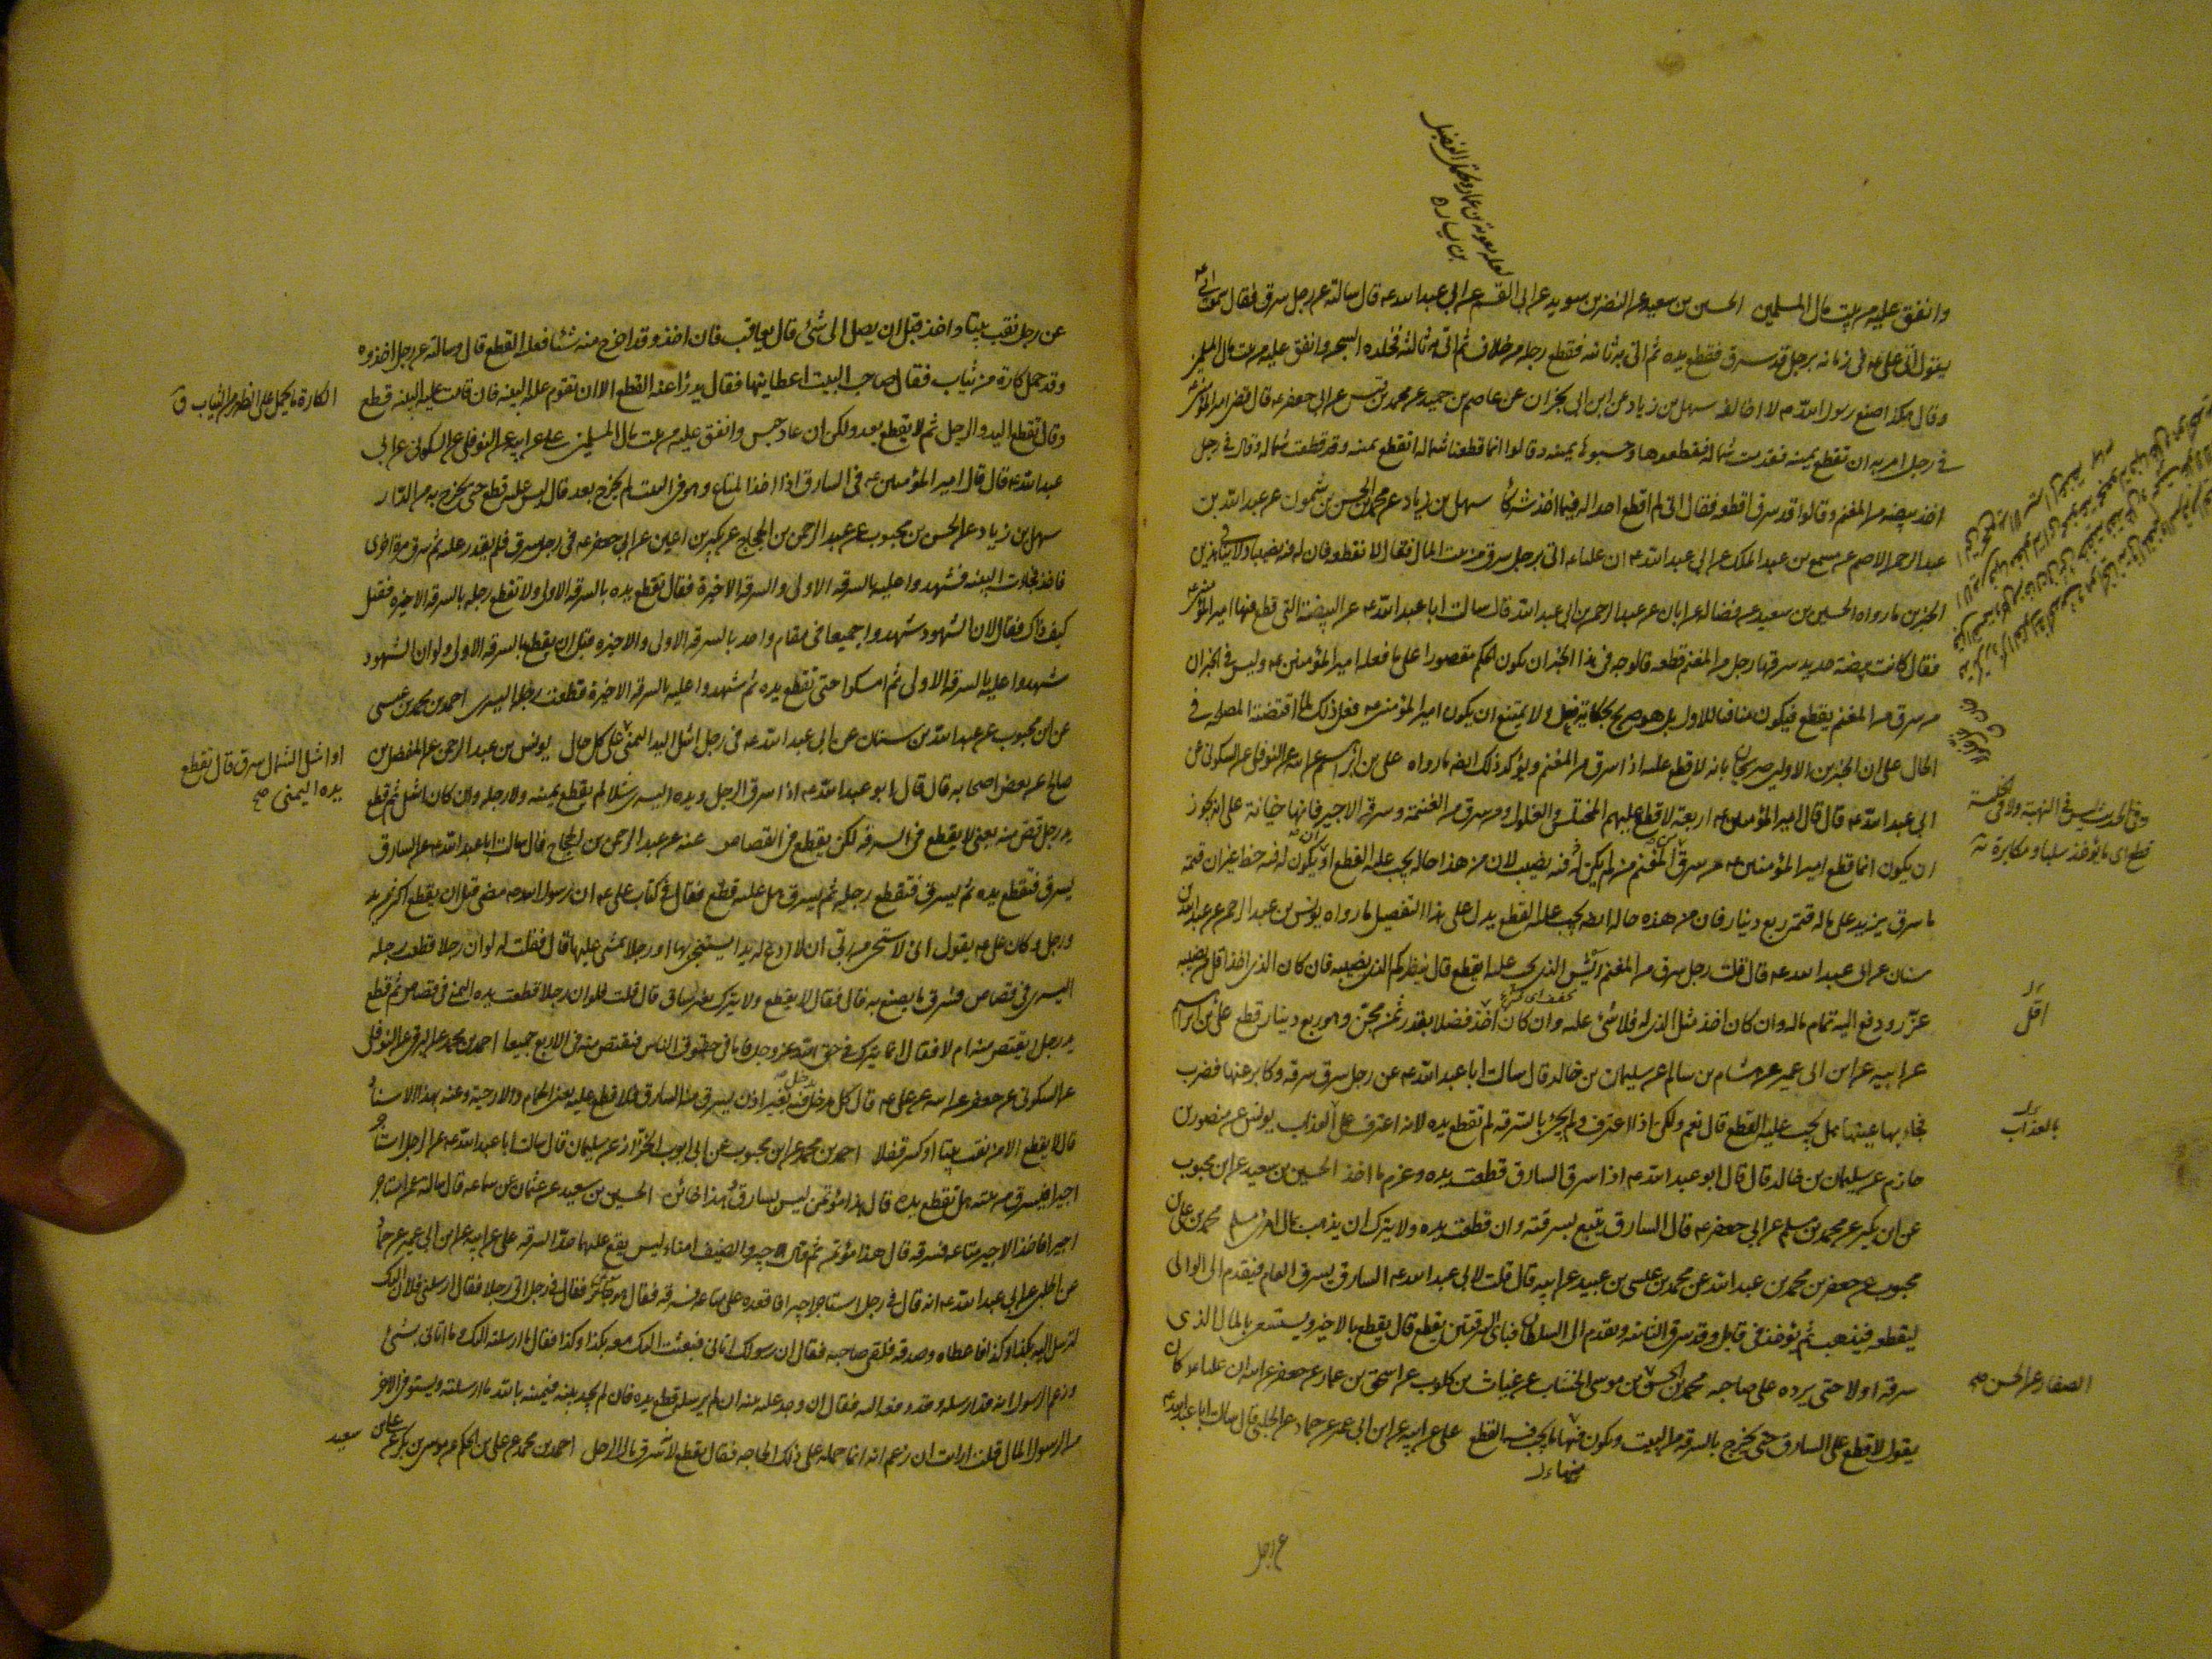 وانفق عليه من بيت مال المسلمين الحسين بن سعيد عن النضر بن سويد عن ابي القسم عن ابي عبد الله ع قال سالته عن رجل سرق فقال سمعت ابي ع
يقول اتى علي ع في زمانه برجل قد سرق فقطع يده ثم اتي به ثانية فقطع رجله من خلاف ثم اتي به ثالثة فخلده السجن وانفق عليه من بيت مال المسلمين
وقال هكذا صنع رسول الله ص لا اخالفه سهل بن زياد عن ابن ابي نجران عن عاصم بن حميد عن محمد بن قيس عن ابي جعفر ع قال قضى امير المؤمنين ع
في رجل امر به ان تقطع يمينه فقدمت شماله فقطعوها وحسبوها يمينه وقالوا انما قطعنا شماله اتقطع يمينه وقد قطعت شماله وقال في رجل
اخذ بيضة من المغنم وقالوا قد سرق اقطعه فقال اني لم اقطع احدا له فيما اخذ شرك سهل بن زياد عن محمد بن الحسن بن شمون عن عبد الله بن
عبد الرحمن الاصم عن مسمع بن عبد الملك عن ابي عبد الله ع ان عليا ع اتي برجل سرق من بيت المال فقال لا تقطعه فان له فيه نصيبا ولا ينافي هذين
الخبرين ما رواه الحسين بن سعيد عن فضالة عن ابان عن عبد الرحمن بن ابي عبد الله قال سالت ابا عبد الله ع عن البيضة التي قطع فيها امير المؤمنين ع
فقال كانت بيضة حديد سرقها رجل من المغنم فقطعه فالوجه في هذا الخبر ان يكون الحكم مقصورا على ما فعله امير المؤمنين ع وليس في الخبر ان
من سرق من المغنم يقطع فيكون منافيا للاول بل هو صريح بحكاية فعل ولا يمتنع ان يكون امير المؤمنين ع فعل ذلك لما اقتضته المصلحة في
الحال على ان الخبرين الاولين صريحان بانه لا قطع عليه اذا سرق من المغنم ويؤكد ذلك ايضا ما رواه علي بن ابراهيم عن ابيه عن النوفلي عن السكوني عن
ابي عبد الله ع قال قال امير المؤمنين ع اربعة لا قطع عليهم المختلس والغلول ومن سرق من الغنيمة وسرقة الاجير فانها خيانة على انه يجوز
ان يكون انما قطع امير المؤمنين ع من سرق من المغنم من لم يكن له فيه نصيب لان من هذا حاله يجب عليه القطع او يكون له فيه حظ غير ان قيمة
ما سرق يزيد على ماله قيمة ربع دينار فان من هذه حاله ايضا يجب عليه القطع يدل على هذا التفصيل ما رواه يونس بن عبد الرحمن عن عبد الله بن
سنان عن ابي عبد الله ع قال قلت رجل سرق من المغنم ايش الذي يجب عليه ايقطع قال ينظر كم الذي يصيبه فان كان الذي اخذ اقل من نصيبه
عزر ودفع اليه تمام ماله وان كان اخذ مثل الذي له فلا شئ عليه وان كان اخذ فضلا بقدر ثمن مجن وهو ربع دينار قطع علي بن ابراهيم
عن ابيه عن ابن ابي عمير عن هشام بن سالم عن سليمان بن خالد قال سالت ابا عبد الله ع عن رجل سرق سرقة وكابر عنها فضرب
فجاء بها بعينها هل يجب عليه القطع قال نعم ولكن اذا اعترف ولم يجئ بالسرقة لم تقطع يده لانه اعترف على العذاب يونس عن منصور بن
حازم عن سليمان بن خالد قال قال ابو عبد الله ع اذا سرق السارق قطعت يده وغرم ما اخذ الحسين بن سعيد عن ابن محبوب
عن ابن بكير عن محمد بن مسلم عن ابي جعفر ع قال السارق يتبع بسرقته وان قطعت يده ولا يترك ان يذهب بمال امرئ مسلم محمد بن علي بن
محبوب عن جعفر بن محمد بن عبد الله عن محمد بن عيسى بن عبيد عن ابيه قال قلت لابي عبد الله ع السارق يسرق العام فيقدم الى الوالي
ليقطعه فيذهب ثم يؤخذ في قابل وقد سرق الثانية ويقدم الى السلطان فباي السرقتين يقطع قال يقطع بالاخير ويستسعى بالمال الذي
سرقه اولا حتى يرده على صاحبه محمد بن الحسن بن موسى الخشاب عن غياث بن كلوب عن اسحق بن عمار عن جعفر عن ابيه ان عليا ع كان
يقول لا قطع على السارق حتى يخرج بالسرقة من البيت ويكون فيها ما يجب فيه القطع علي عن ابيه عن ابن ابي عمير عن حماد عن الحلبي قال سالت ابا عبد الله ع
منهاء
اقل
بالعذاب
الصفار عن الحسن صح
عن رجل
عن رجل نقب بيتا واخذ قبل ان يصل الى شئ قال يعاقب فان اخذ وقد اخرج منه شيئا فعليه القطع قال وسالته عن رجل اخذوه
وقد حمل كارة من ثياب فقال صاحب البيت اعطانيها فقال يدرأ عنه القطع الا ان تقوم عليه البينة فان قامت عليه البينة قطع
وقال تقطع اليد والرجل ثم لا يقطع بعد ولكن ان عاد حبس وانفق عليه من بيت مال المسلمين علي عن ابيه عن النوفلي عن السكوني عن ابي
عبد الله ع قال قال امير المؤمنين ع في السارق اذا اخذ المتاع وهو في البيت لم يخرج بعد قال ليس عليه قطع حتى يخرج به من الدار
سهل بن زياد عن الحسن بن محبوب عن عبد الرحمن بن الحجاج عن بكير بن اعين عن ابي جعفر ع في رجل سرق فلم يقدر عليه ثم سرق مرة اخرى
فاخذ فجاءت البينة فشهدوا عليه بالسرقة الاولى والسرقة الاخيرة فقال تقطع يده بالسرقة الاولى ولا تقطع رجله بالسرقة الاخيرة فقيل
كيف ذاك فقال لان الشهود شهدوا جميعا في مقام واحد بالسرقة الاولى والاخيرة قبل ان يقطع بالسرقة الاولى ولو ان الشهود
شهدوا عليه بالسرقة الاولى ثم امسكوا حتى تقطع يده ثم شهدوا عليه بالسرقة الاخيرة قطعت رجله اليسرى احمد بن محمد بن عيسى
عن ابن محبوب عن عبد الله بن سنان عن ابي عبد الله ع في رجل اشل اليد اليمنى على كل حال يونس بن عبد الرحمن عن المفضل بن
صالح عن بعض اصحابه قال قال ابو عبد الله ع اذا سرق الرجل ويده اليسرى شلاء لم يقطع يمينه ولا رجله وان كان اشل ثم قطع
يد رجل قص منه يعني لا يقطع في السرقة لكن يقطع في القصاص عنه عن عبد الرحمن بن الحجاج قال سالت ابا عبد الله ع عن السارق
يسرق فتقطع يده ثم يسرق فتقطع رجله ثم يسرق هل عليه قطع فقال في كتاب علي ع ان رسول الله ص مضى قبل ان يقطع اكثر من يد
ورجل وكان علي ع يقول اني لاستحي من ربي ان لا ادع له يدا يستنجي بها او رجلا يمشي عليها قال فقلت له لو ان رجلا قطعت رجله
اليسرى في قصاص فسرق ما يصنع به قال فقال لا يقطع ولا يترك بغير ساق قال قلت فلو ان رجلا قطعت يده اليمنى في قصاص ثم قطع
يد رجل ايقتص منه ام لا فقال انما يترك في حق الله عز وجل فاما في حقوق الناس فيقتص منه في الاربع جميعا احمد بن محمد عن البرقي عن النوفلي
عن السكوني عن جعفر عن ابيه عن علي ع قال كل مدخل يدخل فيه بغير اذن يسرق منه السارق فلا قطع عليه يعني الحمام والارحية وعنه بهذا الاسناد
قال لا يقطع الا من نقب بيتا او كسر قفلا احمد بن محمد عن ابن محبوب عن ابي ايوب الخزاز عن سليمان قال سالت ابا عبد الله ع عن الرجل استاجر
اجيرا فيسرق من بيته هل تقطع يده قال هذا مؤتمن ليس بسارق هذا خائن الحسين بن سعيد عن عثمان عن سماعة قال سالته عمن استاجر
اجيرا فاخذ الاجير متاعه فسرقه قال هذا مؤتمن ثم قال الاجير والضيف امناء ليس يقع عليهما حد السرقة علي عن ابيه عن ابن ابي عمير عن حماد
عن الحلبي عن ابي عبد الله ع انه قال في رجل استاجر اجيرا فاقعده على متاعه فسرقه فقال هو مؤتمن فقال في رجل اتى رجلا فقال ارسلني فلان اليك
لترسل اليه بكذا وكذا فاعطاه وصدقه فلقي صاحبه فقال ان رسولك اتاني فبعثت اليك معه بكذا وكذا فقال ما ارسلته اليك وما اتاني بشئ
وزعم الرسول انه قد ارسله وقد دفعه اليه فقال ان وجد عليه بينة انه لم يرسله قطع يده فان لم يجد بينة فيمينه بالله ما ارسلته ويستوفي الاخر
من الرسول المال قلت ارايت ان زعم انه انما حمله على ذلك الحاجة فقال يقطع لانه سرق مال الرجل احمد بن محمد عن علي بن الحكم عن موسى بن بكر عن علي بن سعيد
الكارة ما يحمل على الظهر من الثياب ق
او اشل الشمال سرق قال تقطع
يده اليمنى صح